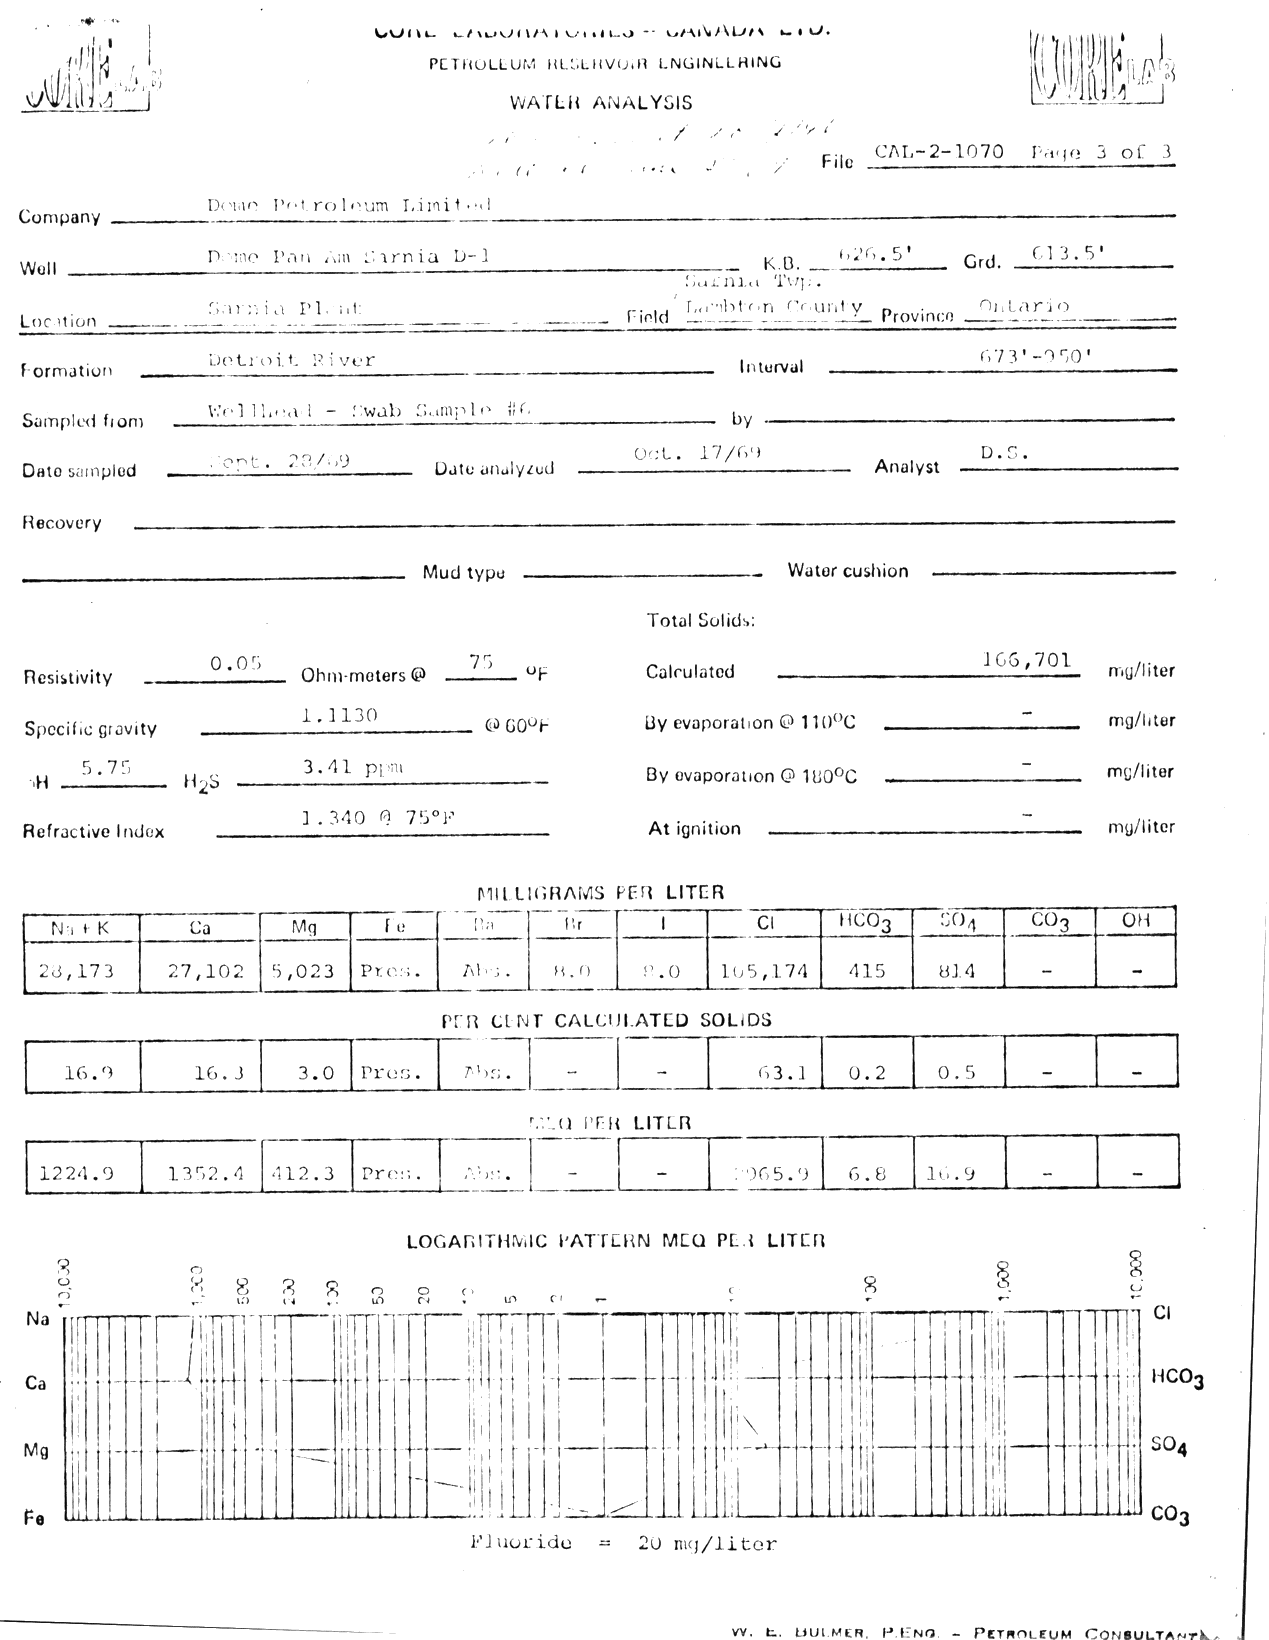 CORE LABORATORIES - CANADA LTD.
PETROLEUM RESERVOIR ENGINEERING
WATER ANALYSIS
CORE LAB
CORE LAB
File CAL-2-1070 Page 3 of 3
Company Dome Petroleum Limited
Well Dome Pan Am Sarnia D-1 K.B. 626.5' Grd. 613.5'
Sarnia Twp.
Location Sarnia Plant Field Lambton County Province Ontario
Formation Detroit River Interval 673'-950'
Sampled from Wellhead - Swab Sample #6 by
Date sampled Sept. 28/69 Date analyzed Oct. 17/69 Analyst D.S.
Recovery
Mud type Water cushion
Total Solids:
Resistivity 0.05 Ohm-meters @ 75 °F Calculated 166,701 mg/liter
Specific gravity 1.1130 @ 60°F By evaporation @ 110°C - mg/liter
pH 5.75 H2S 3.41 ppm By evaporation @ 180°C - mg/liter
Refractive Index 1.340 @ 75°F At ignition - mg/liter
MILLIGRAMS PER LITER
Na + K Ca Mg Fe Ba Br I Cl HCO3 SO4 CO3 OH
28,173 27,102 5,023 Pres. Abs. 8.0 105,174 415 814 - -
PER CENT CALCULATED SOLIDS
16.9 16.3 3.0 Pres. Abs. - - 63.1 0.2 0.5 - -
MEQ PER LITER
1224.9 1352.4 412.3 Pres. Abs. - - 2965.9 6.8 16.9 - -
LOGARITHMIC PATTERN MEQ PER LITER
10,000 1,000 500 200 100 50 20 10 5 2 1 10 100 1,000 10,000
Na Cl
Ca HCO3
Mg SO4
Fe CO3
Fluoride = 20 mg/liter
W. E. BULMER, P.ENG. - PETROLEUM CONSULTANT